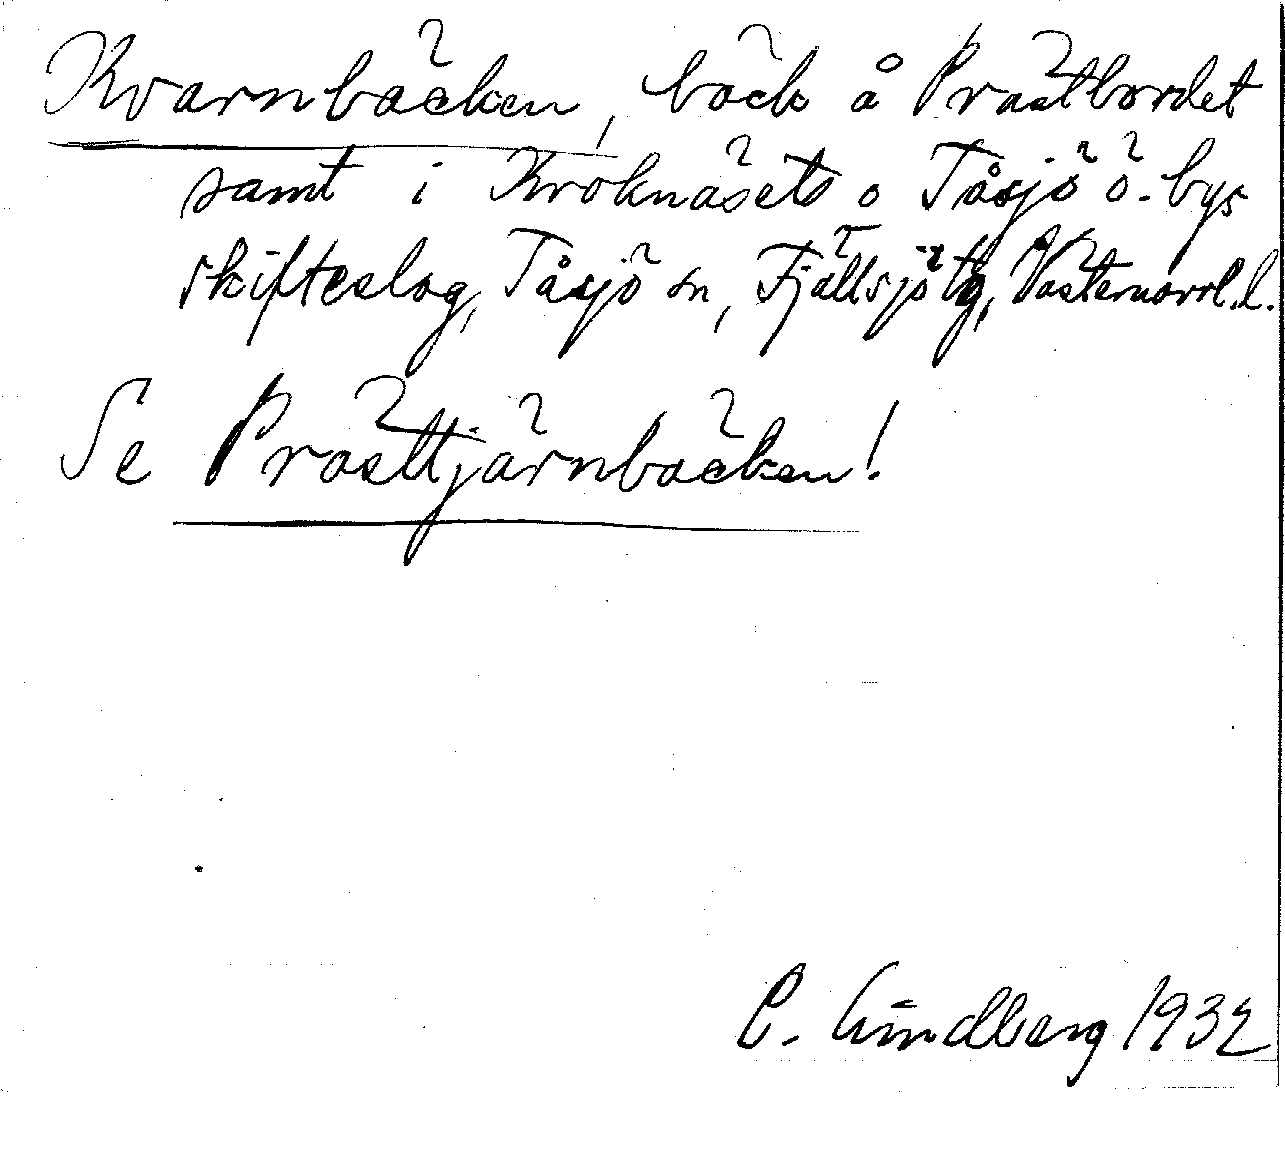 Kvarnbäcken, bäck å Prästbordet
samt i Kroknäsets o Tåsjö ö. bys
skifteslag, Tåsjö sn, Fjällsjö tg, Västernorrl. l.
Se Prästtjärnbäcken!
C. Lindberg 1932